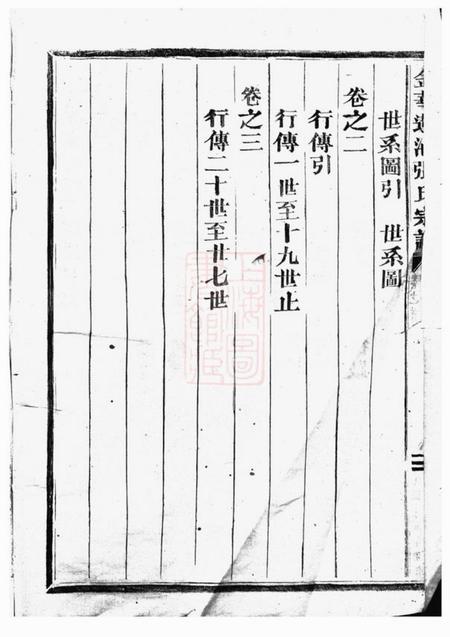 世系圖引　世系圖
卷之二
行傳引
行傳一世至十九世止
卷之三
行傳二十世至廿七世